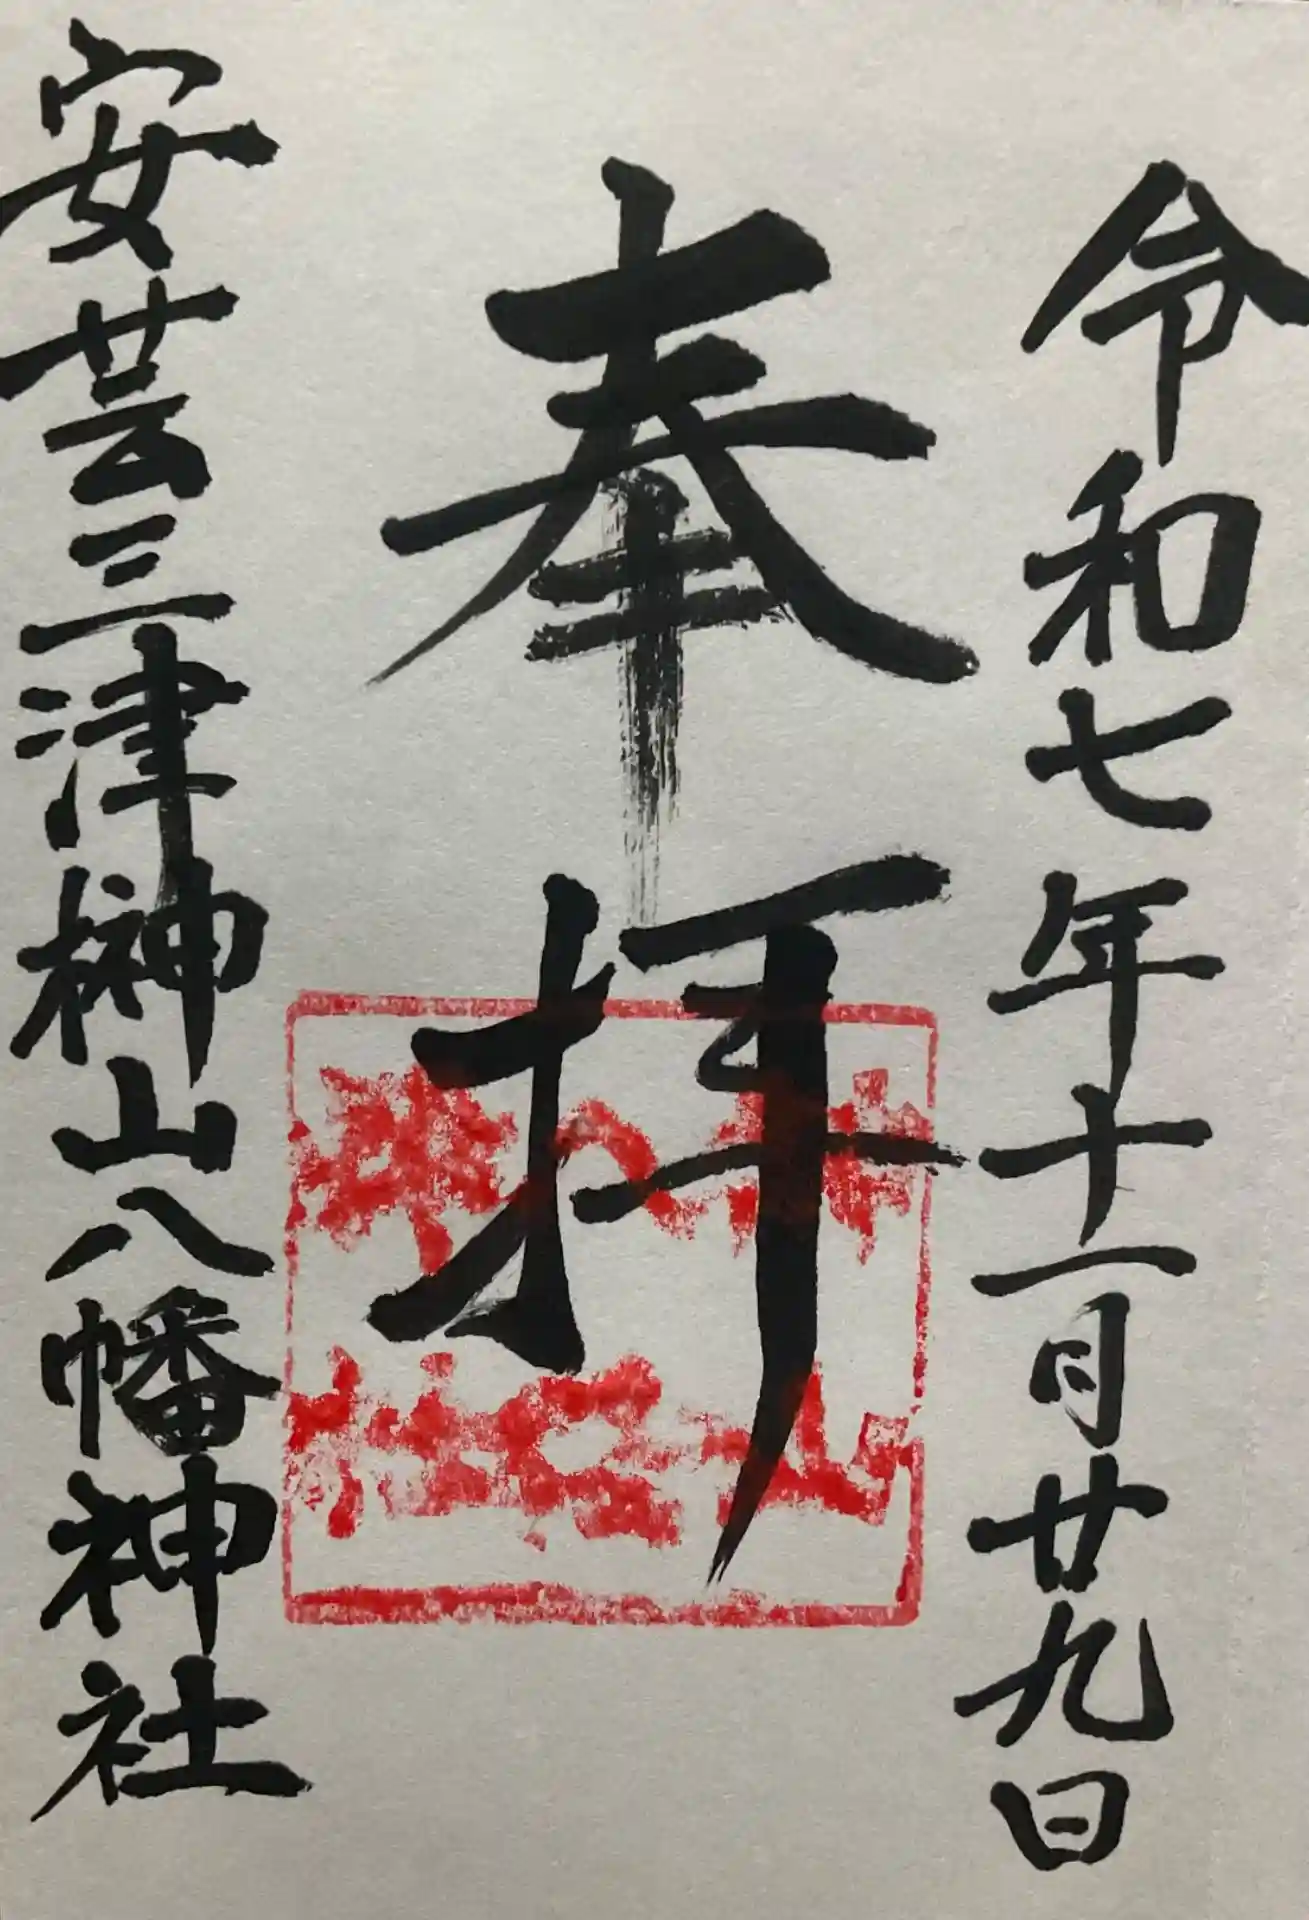 令和七年十一月廿九日
奉拝
安芸三津榊山八幡神社